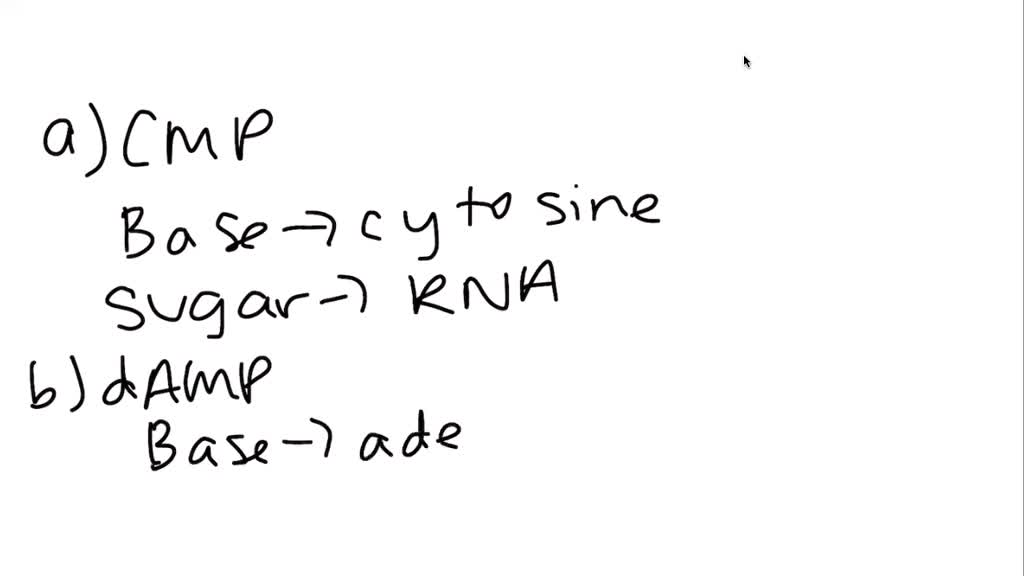 a) CMP
Base → cytosine
sugar → RNA
b) dAMP
Base → ade